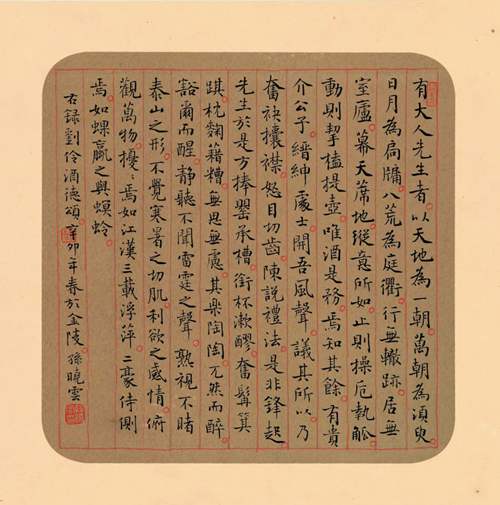 有大人先生者以天地為一朝萬朝為須臾
日月為扃牖八荒為庭衢行無轍跡居無
室廬幕天席地縱意所如止則操卮執觚
動則挈榼提壺唯酒是務焉知其餘有貴
介公子縉紳處士聞吾風聲議其所以乃
奮袂攘襟怒目切齒陳說禮法是非鋒起
先生於是方捧罌承槽銜杯漱醪奮髯箕
踑枕麴藉糟無思無慮其樂陶陶兀然而醉
豁爾而醒靜聽不聞雷霆之聲熟視不睹
泰山之形不覺寒暑之切肌利欲之感情俯
觀萬物擾〻焉如江漢三載浮萍二豪侍側
焉如蜾蠃之與螟蛉
右録劉伶酒德頌辛卯年春於金陵孫曉雲